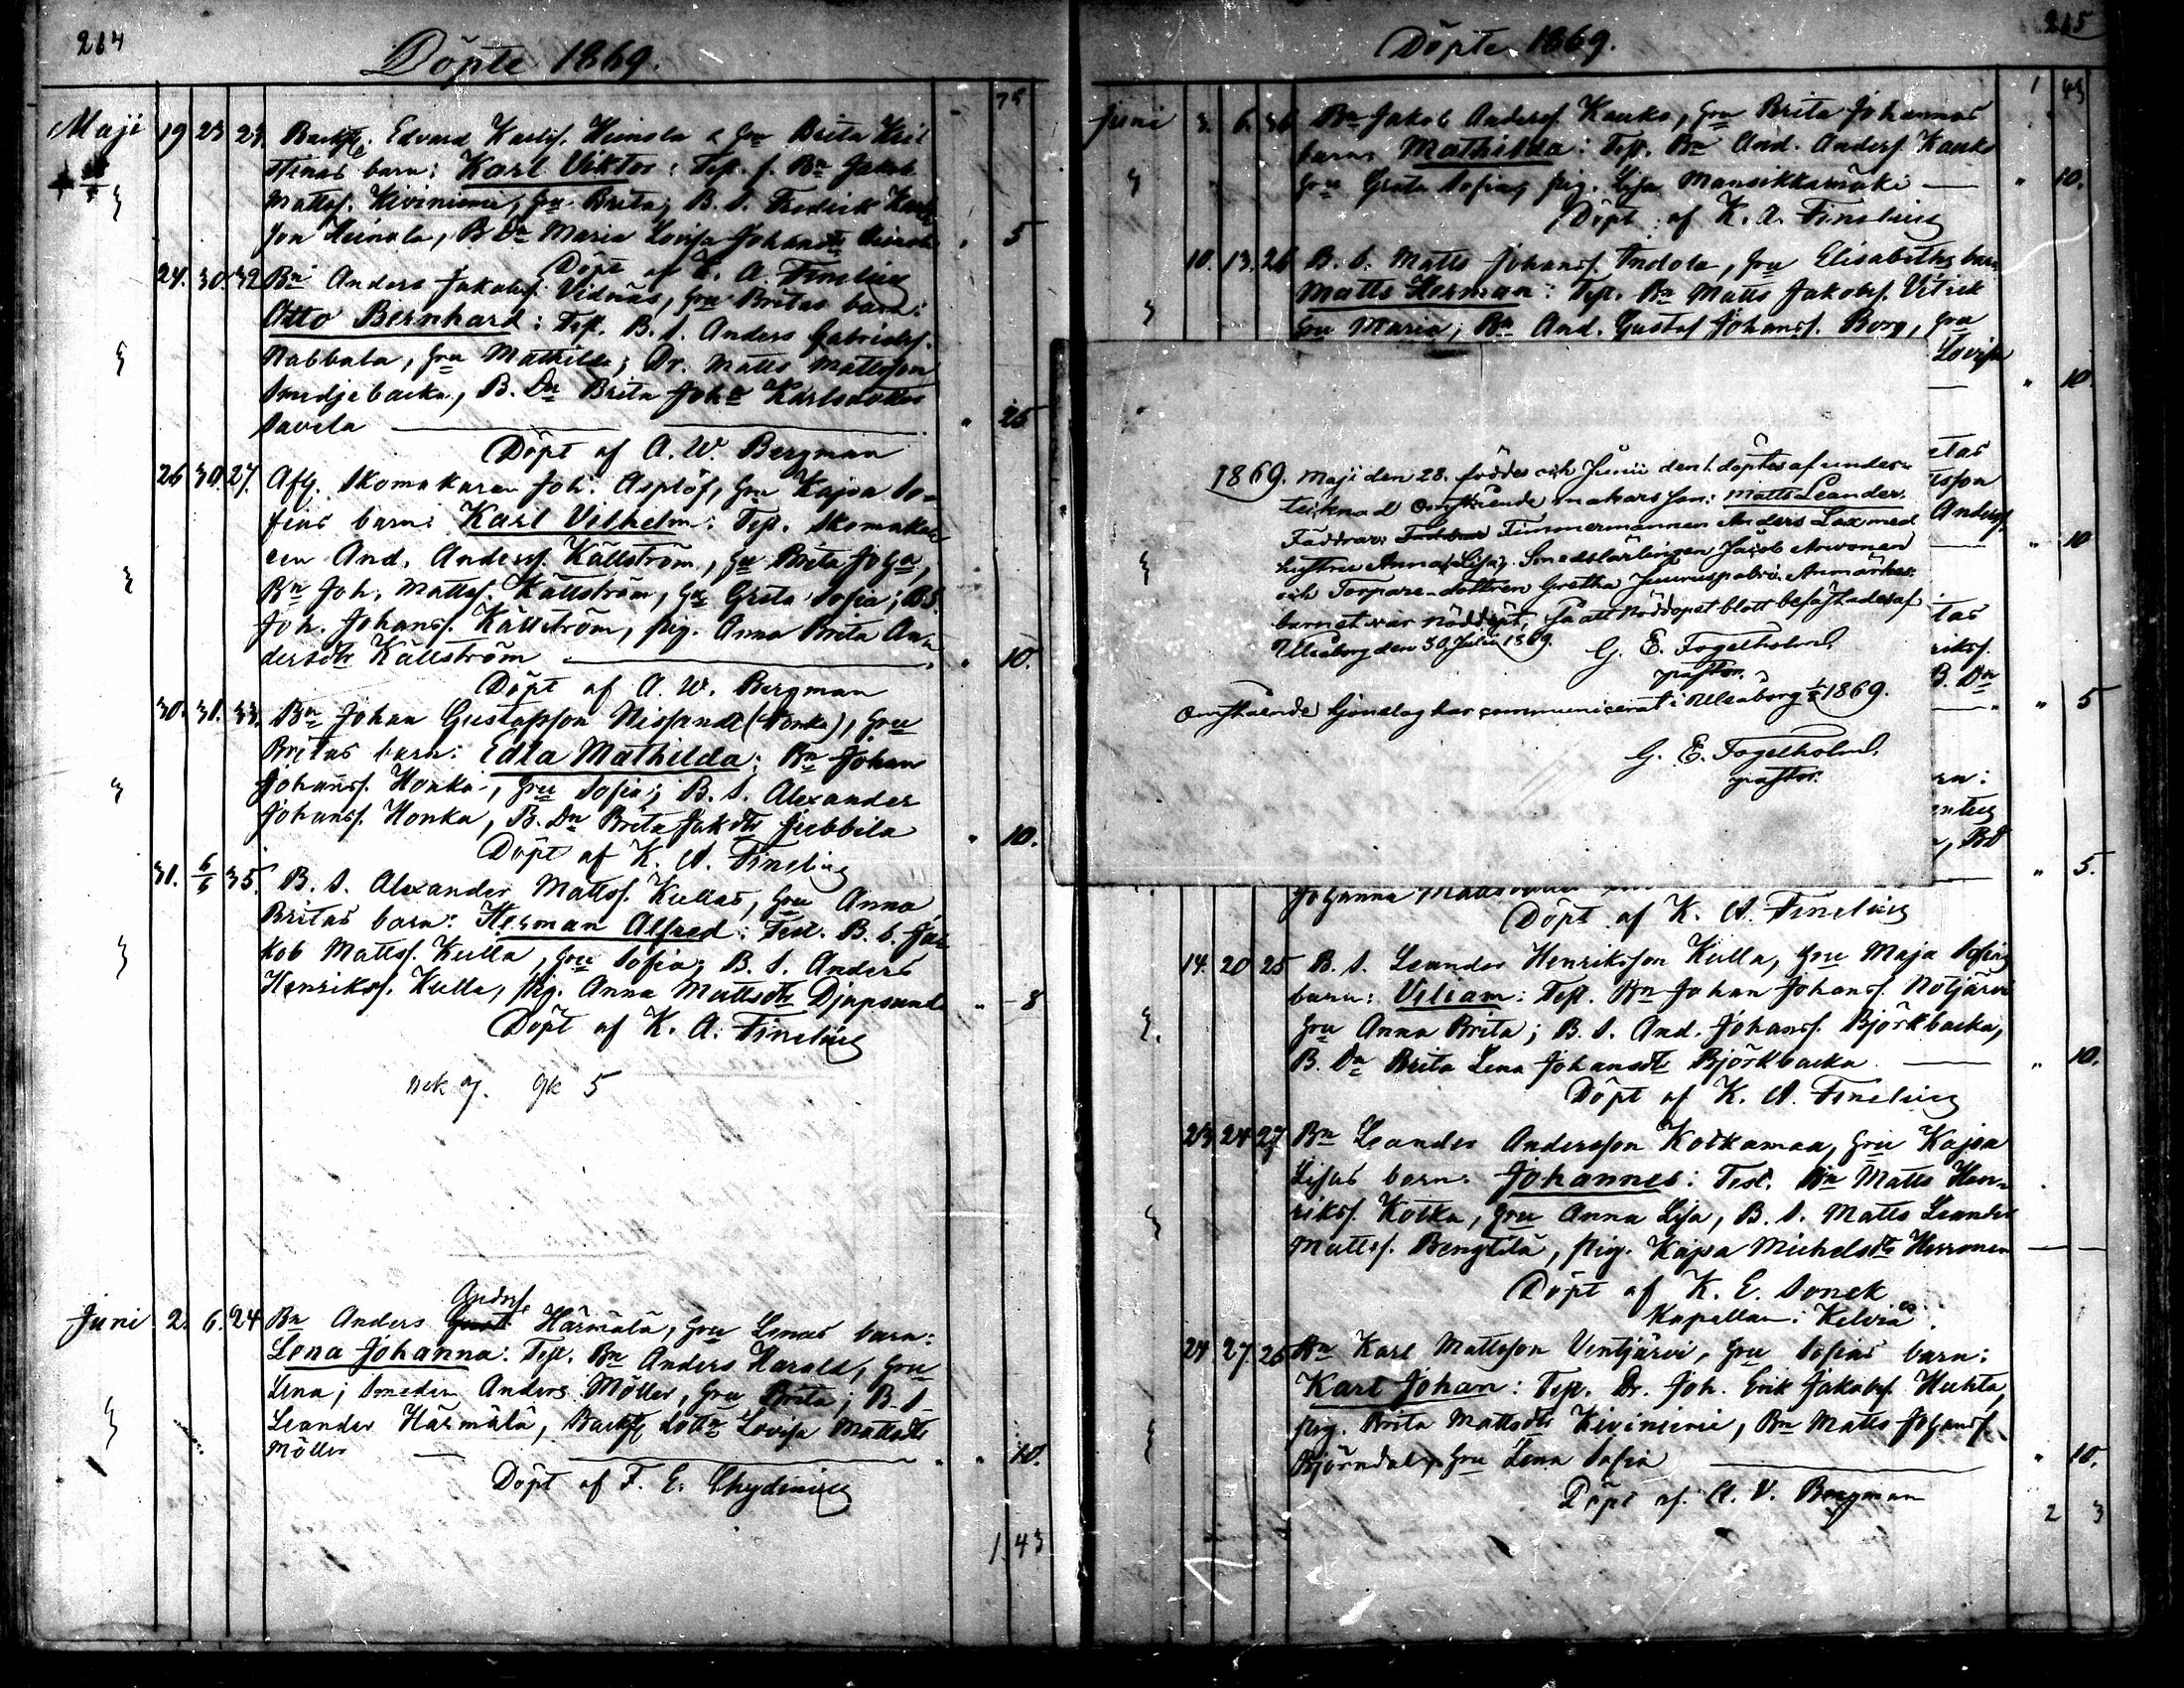 264
Döpte 1869.
75
Maji 19 23 29 Backst. Edvard Karlss. Heinola & Hru Brita Kris
stinas barn: Karl Viktor: Test. f. Bn Jakob
Mattss. Kiviniemi, hru Brita; B. S. Fredrik Karls
son Heinola, B Dn Maria Lovisa Johansdtr Heinola " 5
Döpt af K. A. Finelius
24. 30. 32 Bn Anders Jakobss. Vidnäs, hru Britas barn:
Otto Bernhard: Test. B. S. Anders Gabrielss.
Nabbala, hru Mathilda; Dr. Matts Mattsson
Smedjebacka, B. Dn Brita Joha Karlsdotter
Savela " 25
Döpt af A. W. Bergman
26 30. 27. Afg. Skomakaren Joh. Asplöf, hru Kajsa So-
fias barn: Karl Vilhelm: Test. Skomaka
ren And. Anderss. Källström, hru Brita Joha,
Bn Joh. Mattss. Källström, hru Greta Sofia; BS.
Joh. Johanss. Källström, pig. Anna Brita An-
dersdtr Källström " 10.
Döpt af A. W. Bergman
30. 31. 33. Bn Johan Gustafsson Nissander (Honka), hru
Britas barn: Edla Mathilda: Bn Johan
Johanss. Honka, hru Sofia; B. S. Alexander
Johanss. Honka, B. Dn Brita Jakdtr Jubbila " 10.
Döpt af K. A. Finelius
31. 6/6 35. B. S. Alexander Mattss. Kullas, hru Anna
Britas barn: Herman Alfred: Test. B. S. Ja-
kob Mattss. Kulla, hru Sofia; B. S. Anders
Henrikss. Kulla, pig. Anna Mattsdtr Djupsund " 8
Döpt af K. A. Finelius
mk 7. gk 5
Juni 2. 6. 24 Bn Anders Anderss. Härmälä, hru Lenas barn:
Lena Johanna: Test. Bn Anders Harald, hru
Lena; Smeden Anders Möller, hru Brita; B. S.
Leander Härmälä, Backst. dottn Lovisa Mattsdtr
Möller " 10.
Döpt af F. E. Chydenius
1 43
265
Döpte 1869.
1 43
Juni 3. 6. 36 Bn Jakob Anderss. Kauko, hru Brita Johannas
barn: Mathilda: Test. Bn And. Anderss. Kauko
hru Greta Sofia; pig. Lisa Mansikkamäki " 10.
Döpt af K. A. Finelius
10. 13. 26 B. S. Matts Johanss. Indola, hru Elisabeths barn
Matts Herman: Test. Bn Matts Jakobss. Vitick
hru Maria; Bn And. Gustaf Johanss. Borg, hru
Lovisa
" 10.
1869. Maji den 28. föddes och Junii den 1. döptes af under-
tecknad omstående makars son: Matts Leander.
Faddrar: Timmermannen Anders Lax med
hustru Anna Lisa, Smedslärlingen Jacob Arwonen
och Torpare-dottren Gretha Juuruspabri. Anmärkes:
barnet war nöddöpt, så att nöddopet blott befästades af
Uleåborg den 30 Julii 1869. G. E. Fogelholm,
pastor.
Omstående Hjonelag har communicerat i Uleåborg 1869.
G. E. Fogelholm,
pastor.
etas
tsson
Anderss.
" 10
tas
rikss.
B. Dn
" 5
rn:
entus
n, BS
" 5.
Johanna
Döpt af K. A. Finelius
14. 20 25 B. S. Leander Henriksson Kulla, hru Maja Sofias
barn: Viliam: Test. Bn Johan Johanss. Notjärvi
hru Anna Brita; B. S. And. Johanss. Björkbacka,
B. Dn Brita Lena Johansdtr Björkbacka " 10.
Döpt af K. A. Finelius
23 24 27 Bn Leander Andersson Kotkamaa, hru Kajsa
Lisas barn: Johannes: Test. Bn Matts Hen-
rikss. Kotka, hru Anna Lisa, B. S. Matts Leander
Mattss. Bengtilä, pig. Kajsa Michelsdtr Herronen
Döpt af K. E. Sonck
Kapellan i Kelviå.
24 27 26 Bn Karl Mattsson Ventjärvi, hru Sofias barn:
Karl Johan: Test. Dr. Joh. Erik Jakobss. Huhta,
pig. Brita Mattsdtr Kiviniemi, Bn Matts Johanss.
Björndal, hru Lena Sofia " 10.
Döpt af A. V. Bergman
2 3